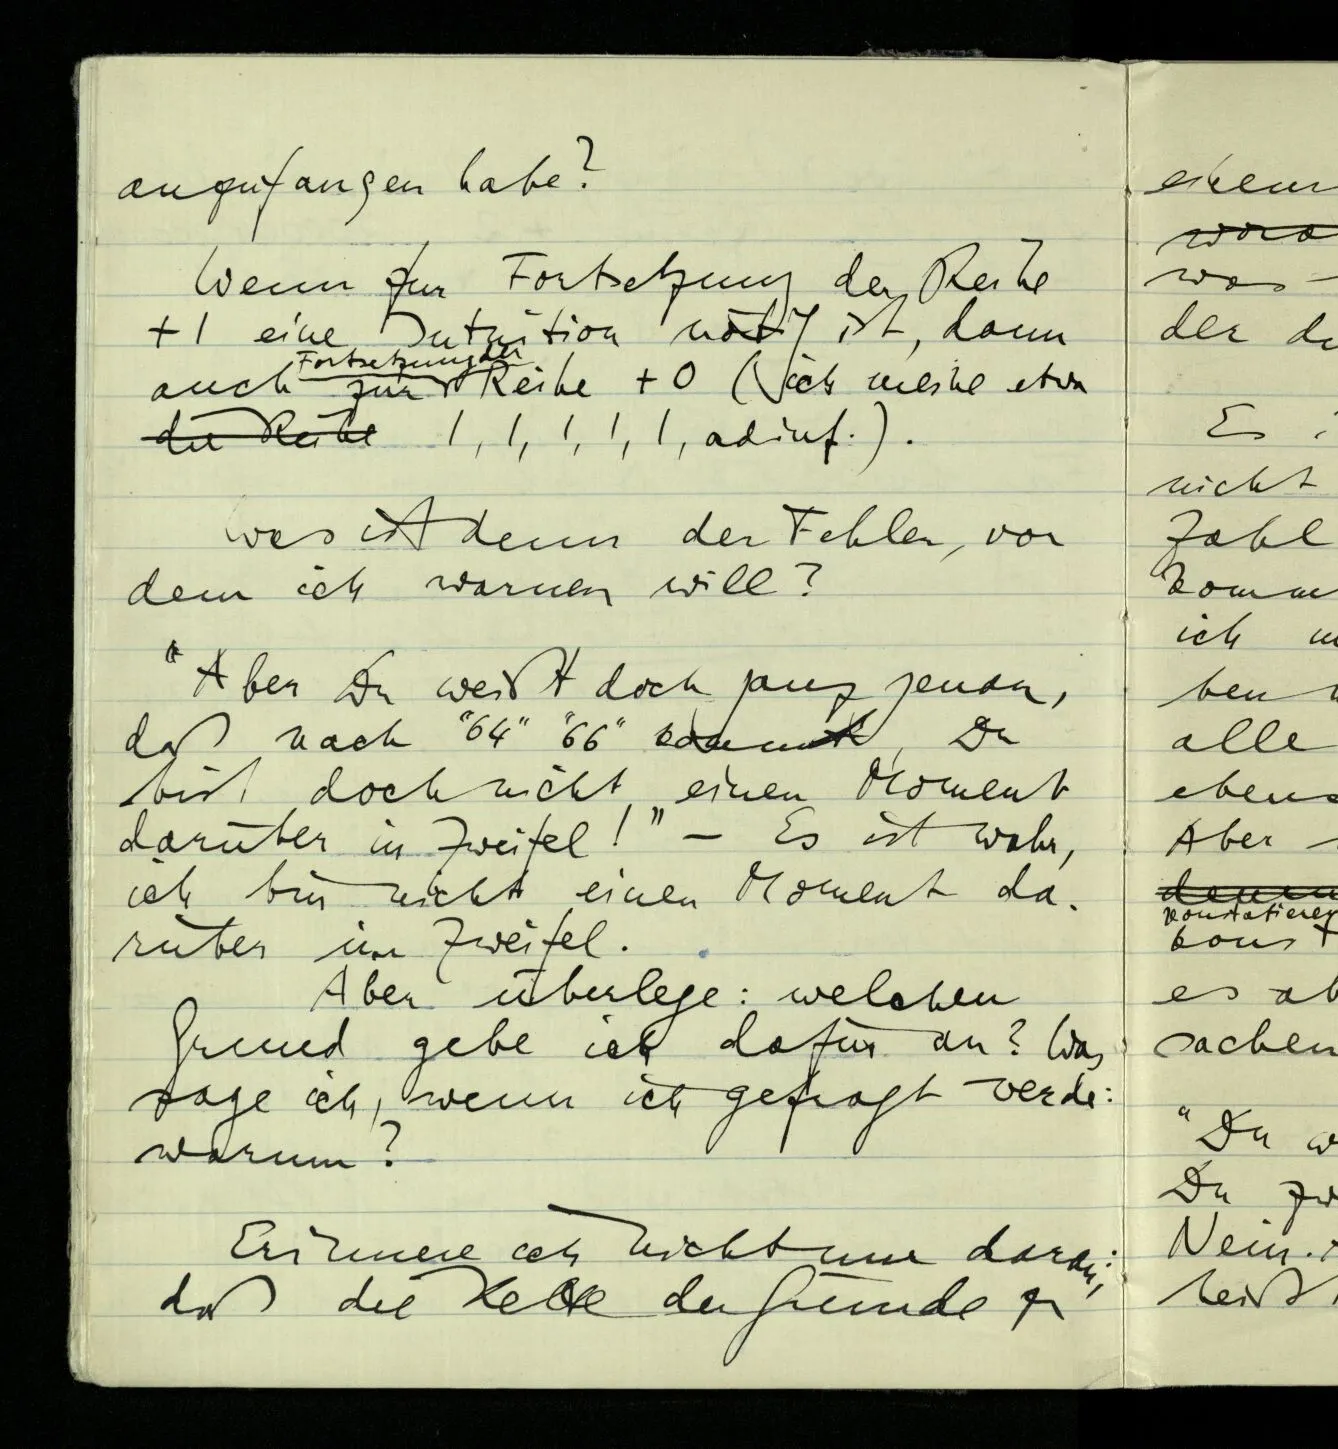 anzufangen habe?
Wenn zur Fortsetzung der Reihe
+1 eine Intuition nötig ist, dann
Fortsetzung der
auch zur Reihe +0 (ich meine etwa
die Reihe 1, 1, 1, 1, 1, ad inf.).
Was ist denn der Fehler, vor
dem ich warnen will?
"Aber Du weißt doch ganz genau,
daß nach "64" "66" kommt, Du
bist doch nicht einen Moment
darüber in Zweifel!" – Es ist wahr,
ich bin nicht einen Moment da-
rüber im Zweifel.
Aber überlege: welchen
Grund gebe ich dafür an? Was
sage ich, wenn ich gefragt werde:
warum?
Erinnere ich nicht nur daran,
daß die Kette der Gründe
einem
was
der
Es
nicht
Zahl
komm
ich
ben
alle
ebens
Aber
konstatieren
konst
es ab
sachen
"Du w
Du zw
Nein.
heißt